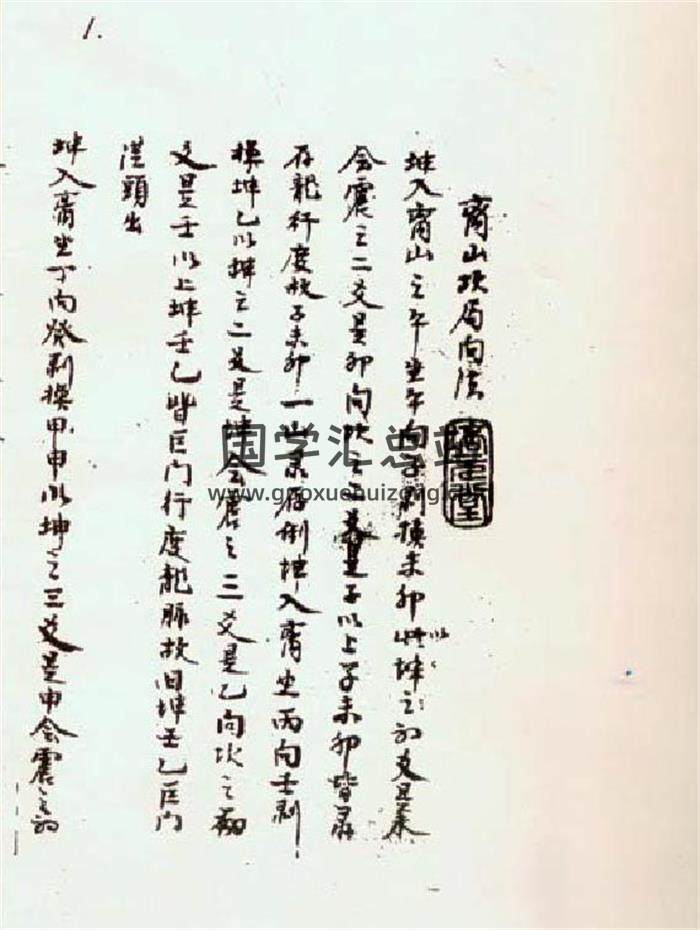 1.
离山坎局向法
坤入离山之午坐午向子剥换未卯以坤之初爻是未
会震之二爻是卯向坎之二爻是子以上子未卯皆录
存龍行度故子未卯一山录存倒坤入离坐丙向壬剥
换坤乙以坤之二爻是坤会震之三爻是乙向坎之初
爻是壬以上坤壬乙皆巨门行度龍脉故曰坤壬乙巨门
從頭出
坤入离坐丁向癸剥换甲申以坤之三爻是申会震之初
国学汇总站